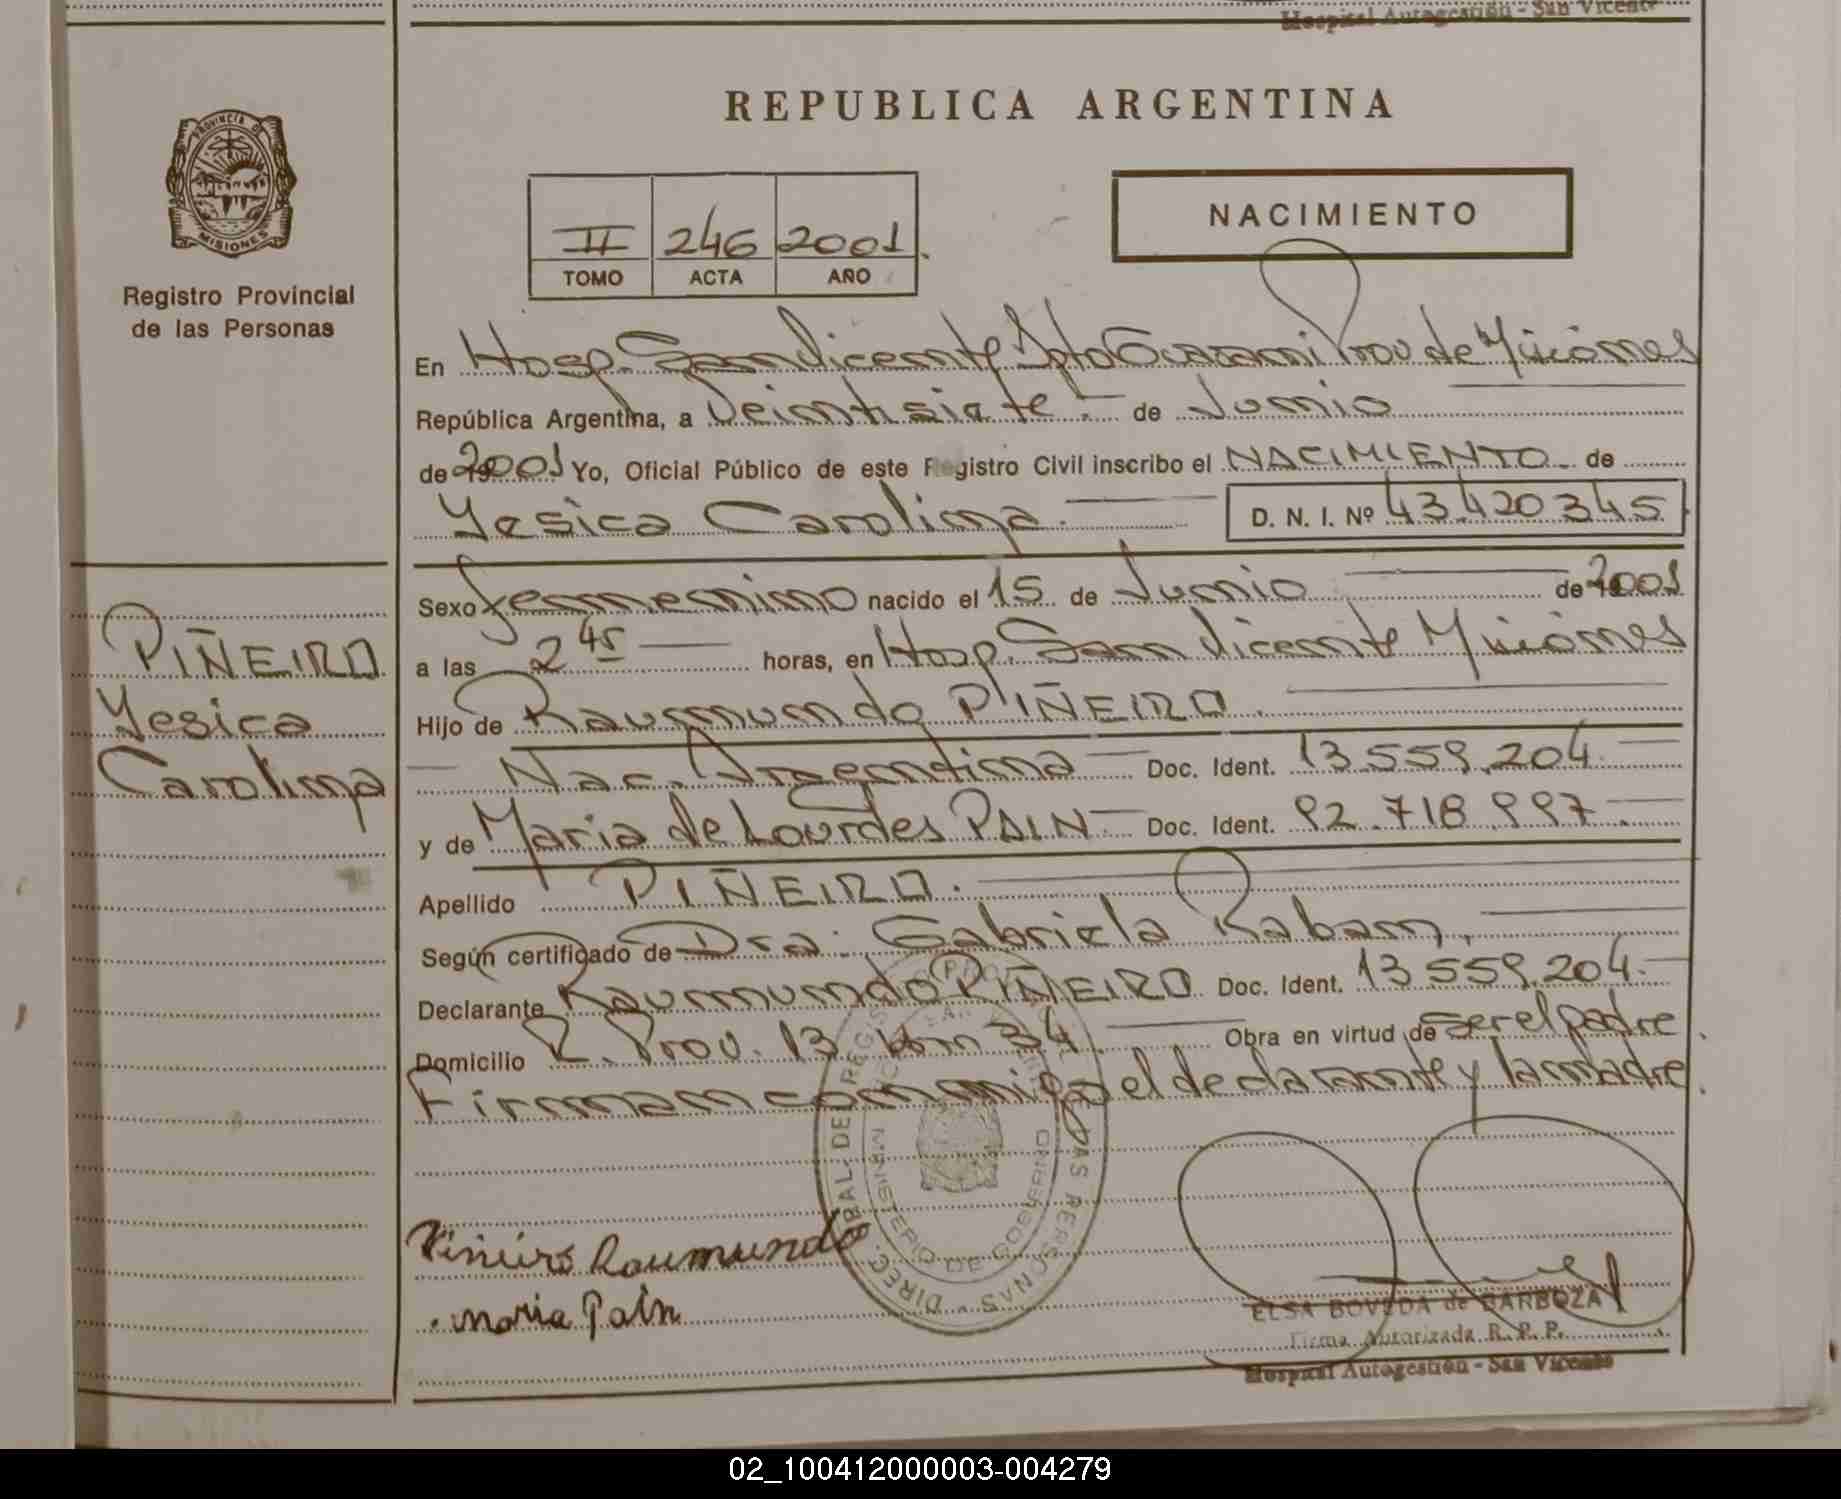 Hospital Autogestión - San Vicente
REPUBLICA ARGENTINA
PROVINCIA DE
MISIONES
Registro Provincial
de las Personas
II 246 2001
TOMO ACTA AÑO
NACIMIENTO
En Hosp. San Vicente Dpto Guarani Prov de Misiones
República Argentina, a Veintisiete de Junio
de 2001 Yo, Oficial Público de este Registro Civil inscribo el NACIMIENTO de
Yesica Carolina D. N. I. Nº 43.420345
Sexo Femenino nacido el 15 de Junio de 2001
a las 2 45 horas, en Hosp. San Vicente Misiones
Hijo de Raumundo PIÑEIRO
Nac. Argentina Doc. Ident. 13.559.204
y de Maria de Lourdes PAIN Doc. Ident. 92.718.997
Apellido PIÑEIRO.
Según certificado de Dra. Gabriela Raban,
Declarante Raumundo PIÑEIRO Doc. Ident. 13.559.204.
Domicilio R. Prov. 13 Km 34 Obra en virtud de ser el padre
Firman conmigo el declarante y la madre.
PIÑEIRO
Yesica
Carolina
Piñeiro Raumundo
Maria Pain
MINISTERIO DE GOBIERNO
ELSA BOVEDA de BARBOZA
Firma Autorizada R. P. P.
Hospital Autogestión - San Vicente
02_100412000003-004279